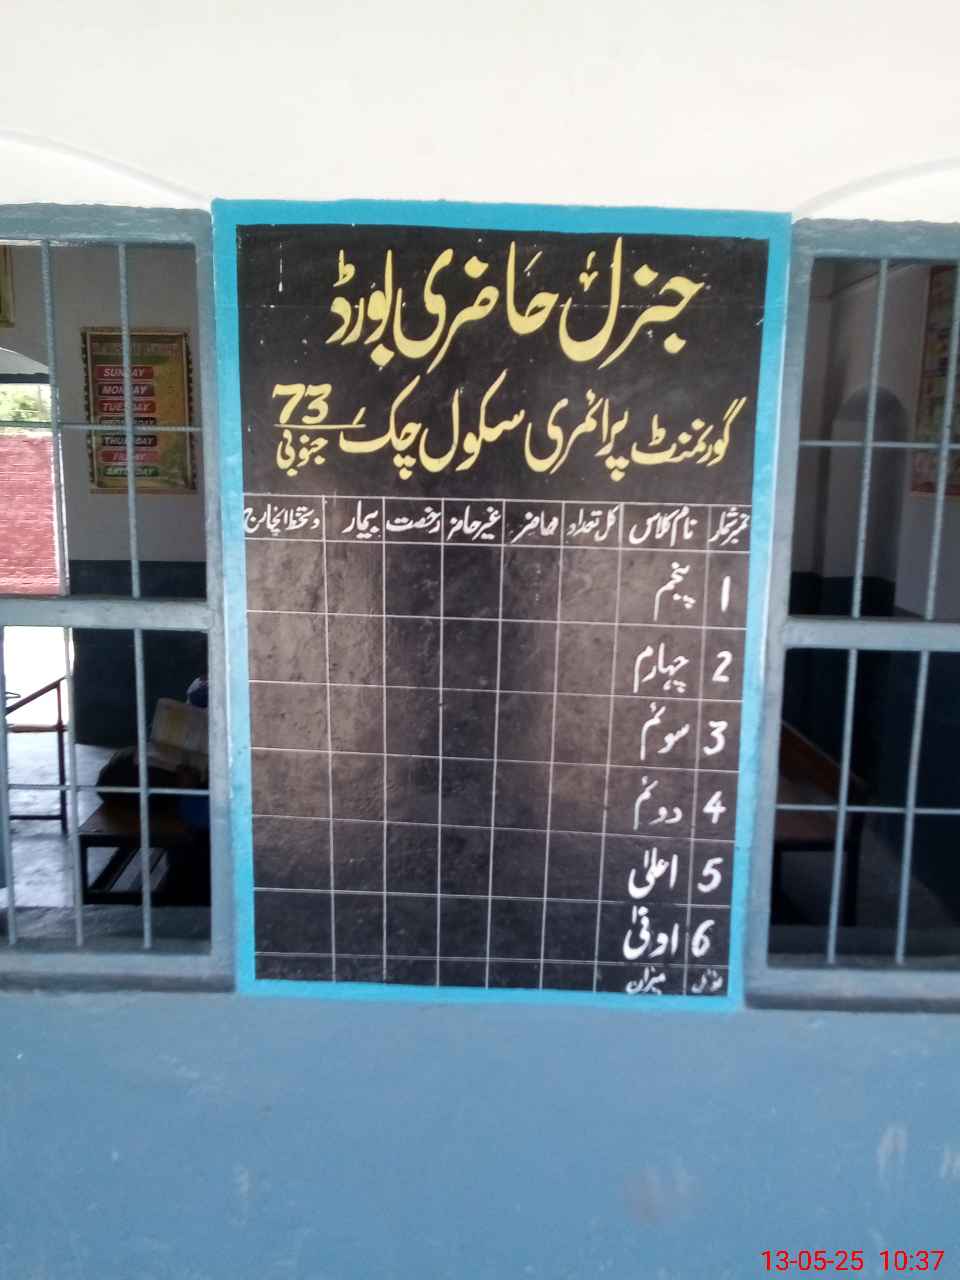 جنرل حاضری بورڈ
گورنمنٹ پرائمری سکول چک 73 جنوبی
نمبر شمار نام کلاس کل تعداد حاضر غیر حاضر رخصت بیمار دستخط انچارج
1 پنجم
2 چہارم
3 سوئم
4 دوئم
5 اعلیٰ
6 اونیٰ
میزان
SUNDAY
MONDAY
TUESDAY
WEDNESDAY
THURSDAY
FRIDAY
SATURDAY
13-05-25 10:37